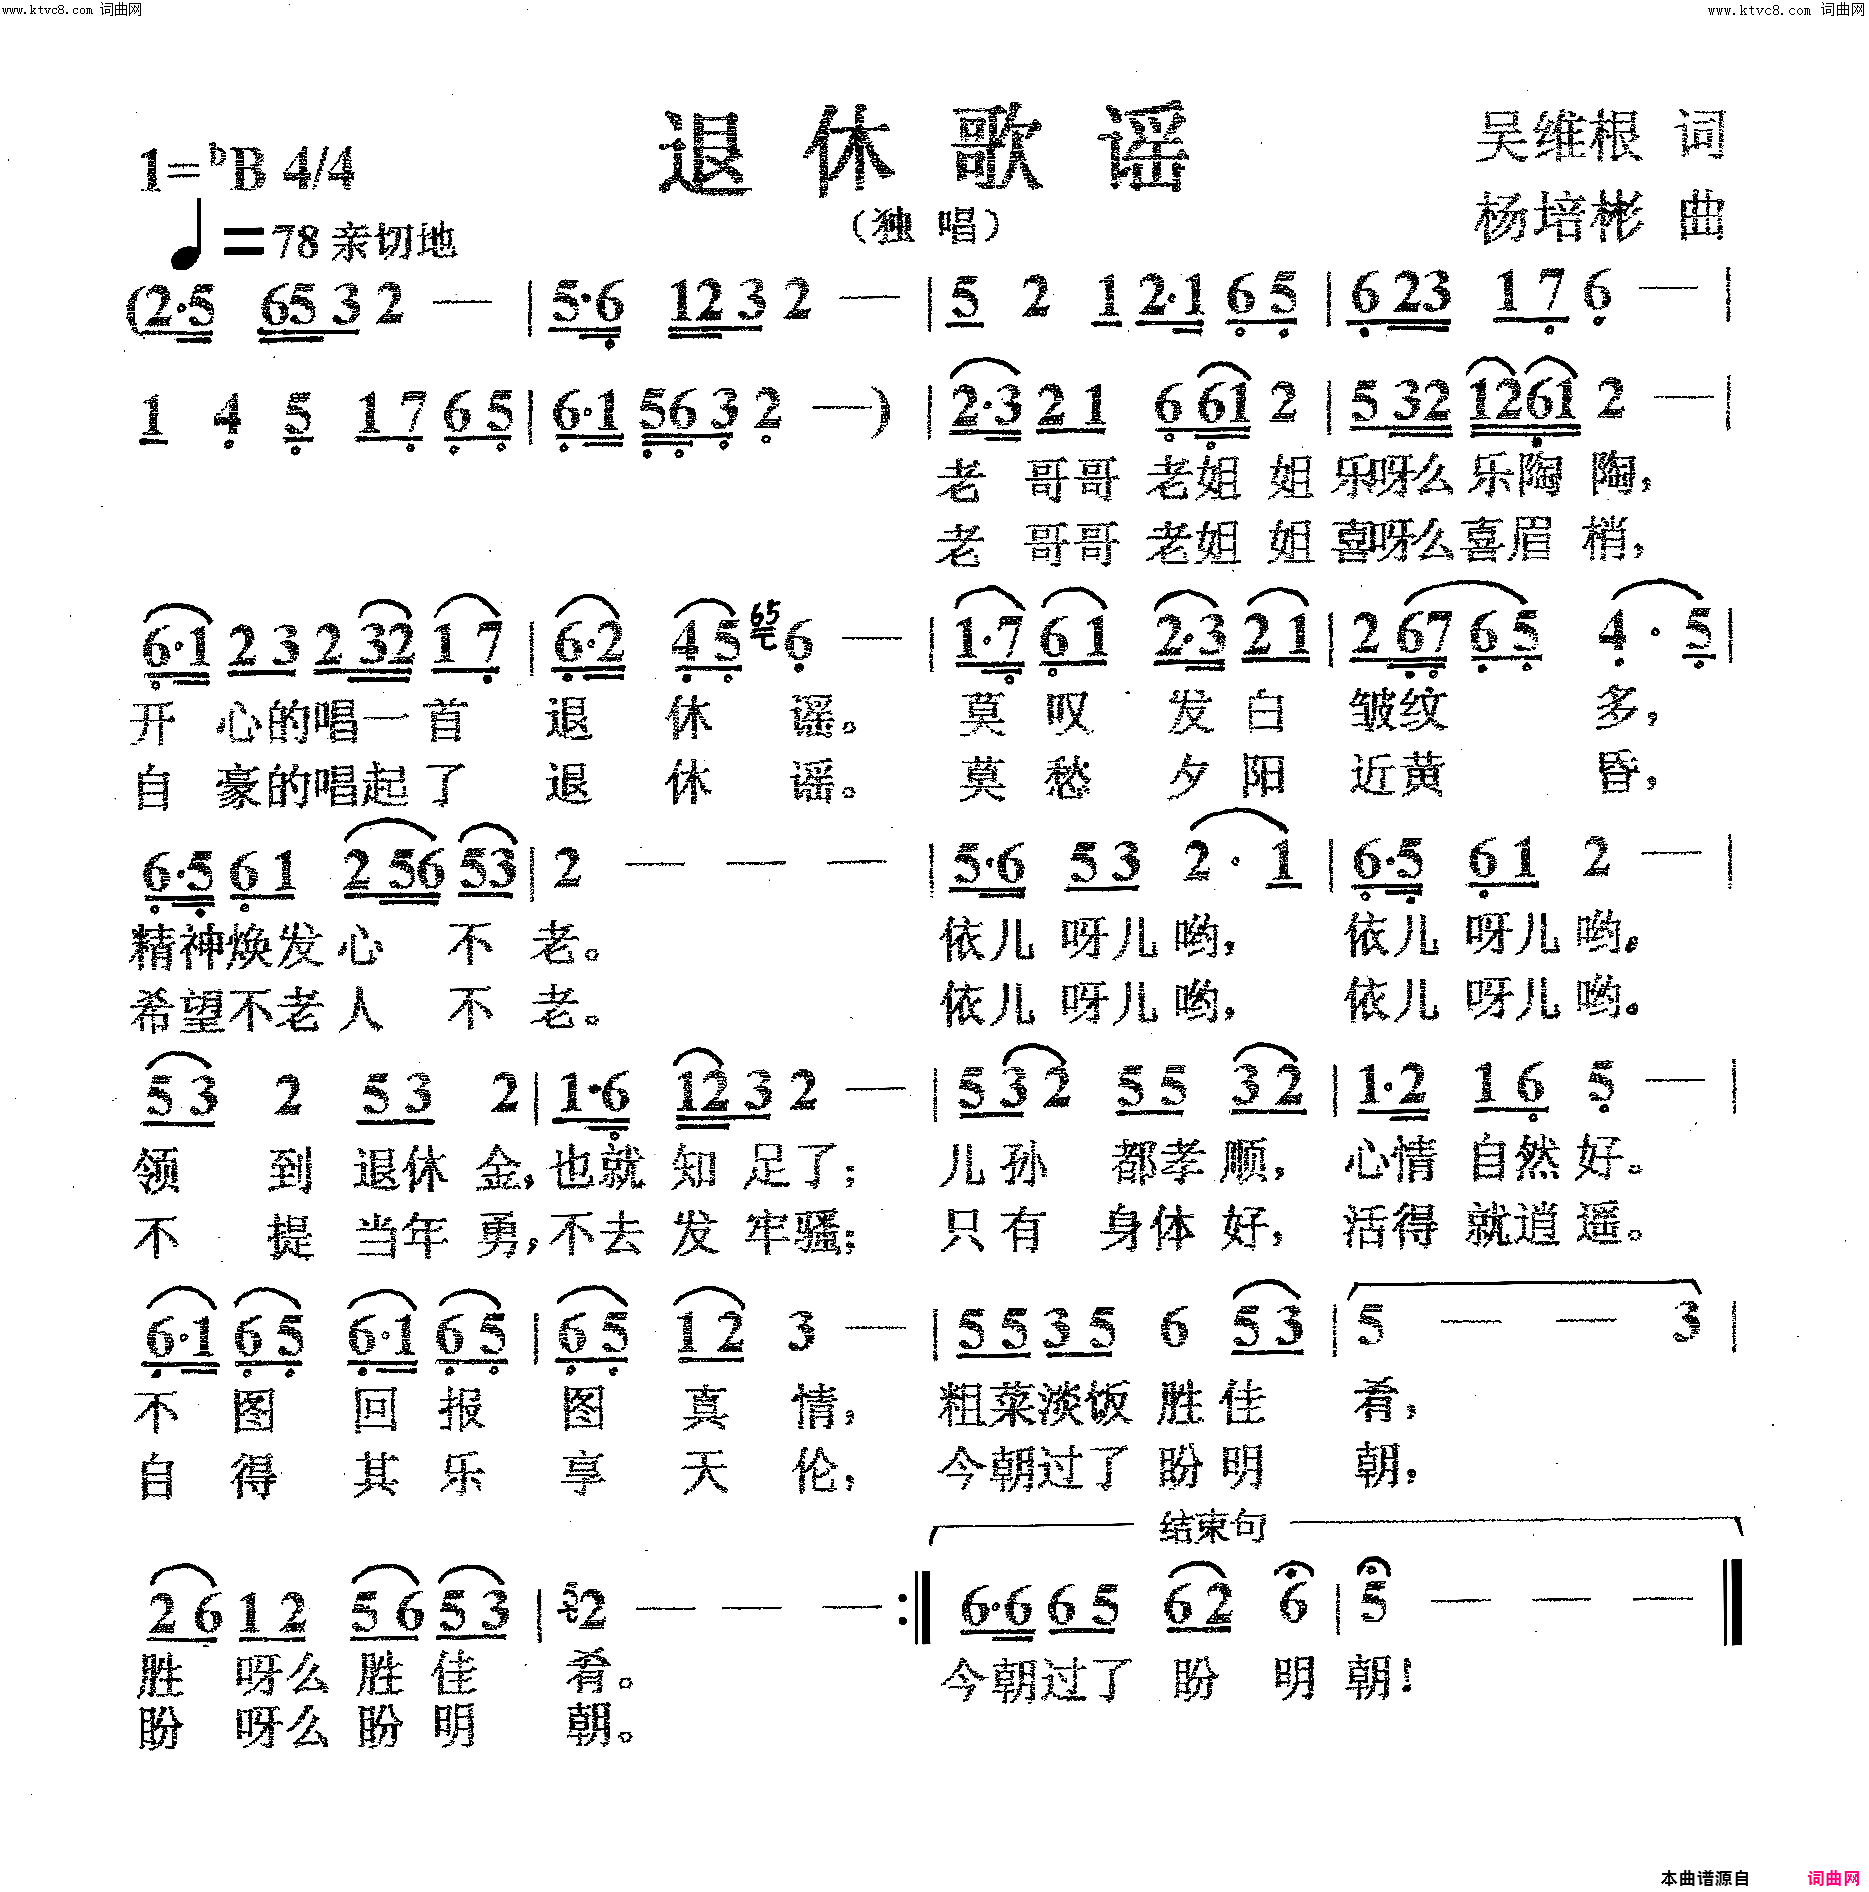 www.ktvc8.com 词曲网 www.ktvc8.com 词曲网
退休歌谣
吴维根 词
1=bB 4/4
(独唱)
杨培彬 曲
♩=78 亲切地
(2·5 653 2 — | 5·6 123 2 — | 5 2 1 2·1 65 | 623 17 6 — |
1 4 5 17 65 | 6·1 563 2 —) | 2·3 21 661 2 | 532 1261 2 — |
老 哥哥 老姐 姐 乐呀么 乐陶 陶,
老 哥哥 老姐 姐 喜呀么 喜眉 梢,
6·1 23 232 17 | 6·2 45 65 6 — | 1·7 61 2·3 21 | 267 65 4·5 |
开 心的唱一首 退 休 谣。 莫 叹 发 白 皱纹 多,
自 豪的唱起了 退 休 谣。 莫 愁 夕 阳 近黄 昏,
6·5 61 256 53 | 2 — — — | 5·6 53 2·1 | 6·5 61 2 — |
精神焕发心 不 老。 依儿 呀儿哟, 依儿 呀儿哟。
希望不老人 不 老。 依儿 呀儿哟, 依儿 呀儿哟。
53 2 53 2 | 1·6 123 2 — | 532 55 32 | 1·2 16 5 — |
领 到 退休 金,也就 知 足了; 儿孙 都孝 顺, 心情 自然好。
不 提 当年 勇,不去 发 牢骚; 只有 身体 好, 活得 就逍遥。
6·1 65 6·1 65 | 65 12 3 — | 5535 6 53 | 5 — — 3 |
不 图 回 报 图 真 情, 粗菜淡饭 胜 佳 肴,
自 得 其 乐 享 天 伦, 今朝过了 盼 明 朝,
结束句
26 12 56 53 | 5 2 — — — :‖ 6·6 65 62 6 | 5 — — — ‖
胜 呀么 胜 佳 肴。 今朝过了 盼 明 朝!
盼 呀么 盼 明 朝。
本曲谱源自 词曲网